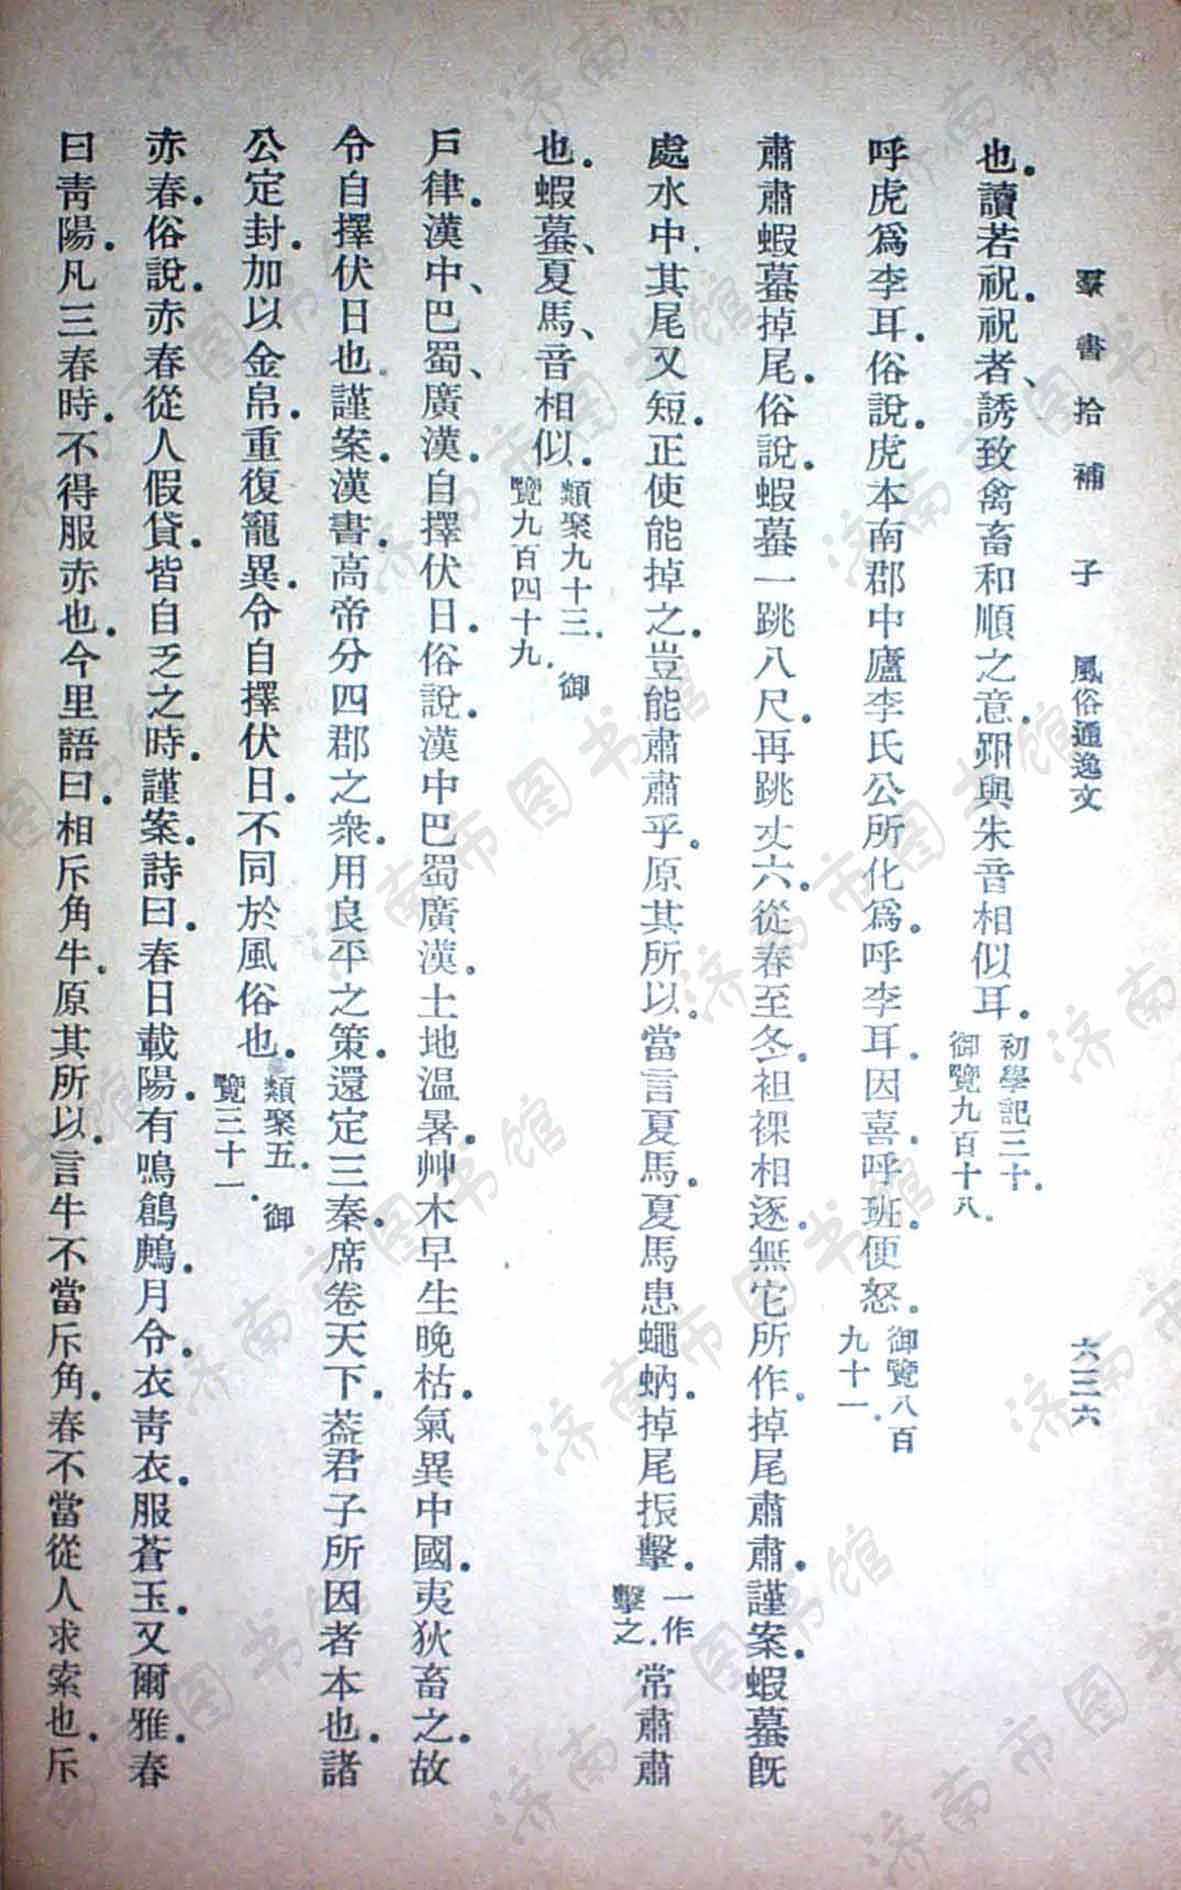 羣書拾補 子 風俗通逸文 六三六
也．讀若祝．祝者、誘致禽畜和順之意．喌與朱音相似耳．初學記三十．御覽九百十八．
呼虎爲李耳．俗說．虎本南郡中廬李氏公所化爲。呼李耳．因喜．呼班．便怒．御覽八百九十一．
肅肅蝦蟇掉尾．俗說．蝦蟇一跳八尺．再跳丈六．從春至冬．袒裸相逐．無它所作．掉尾肅肅．謹案．蝦蟇旣
處水中．其尾又短．正使能掉之．豈能肅肅乎。原其所以．當言夏馬．夏馬患蠅蚋．掉尾振擊．一作擊之．常肅肅
也．蝦蟇、夏馬、音相似．類聚九十三．御覽九百四十九．
戶律．漢中、巴蜀、廣漢．自擇伏日．俗說．漢中巴蜀廣漢．土地温暑．艸木早生晚枯．氣異中國．夷狄畜之．故
令自擇伏日也．謹案．漢書．高帝分四郡之衆．用良平之策．還定三秦．席卷天下．葢君子所因者本也．諸
公定封．加以金帛．重復寵異．令自擇伏日．不同於風俗也．類聚五．御覽三十一．
赤春．俗說．赤春從人假貸．皆自乏之時．謹案．詩曰．春日載陽．有鳴鶬鶊．月令．衣靑衣．服蒼玉．又爾雅．春
曰靑陽．凡三春時．不得服赤也．今里語曰．相斥角牛．原其所以．言牛不當斥角．春不當從人求索也．斥